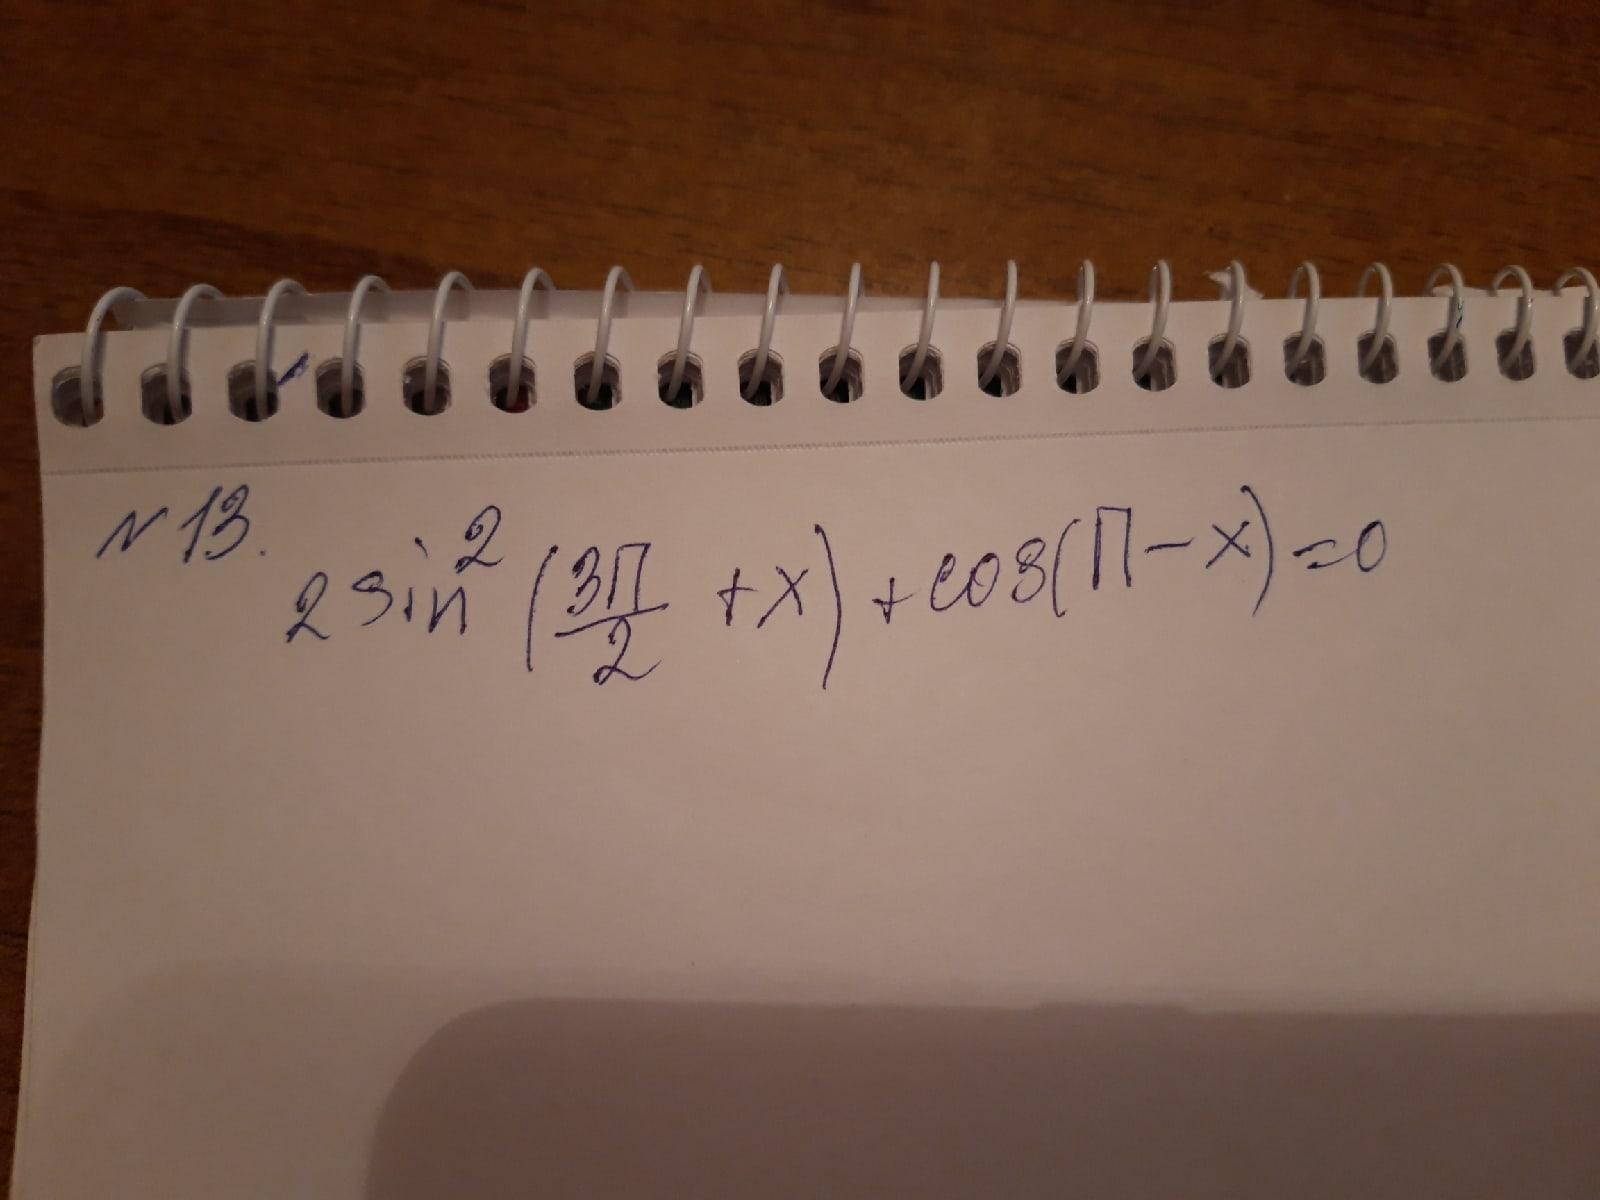 N 13.
2 sin² (3П/2 + x) + cos(П - x) = 0